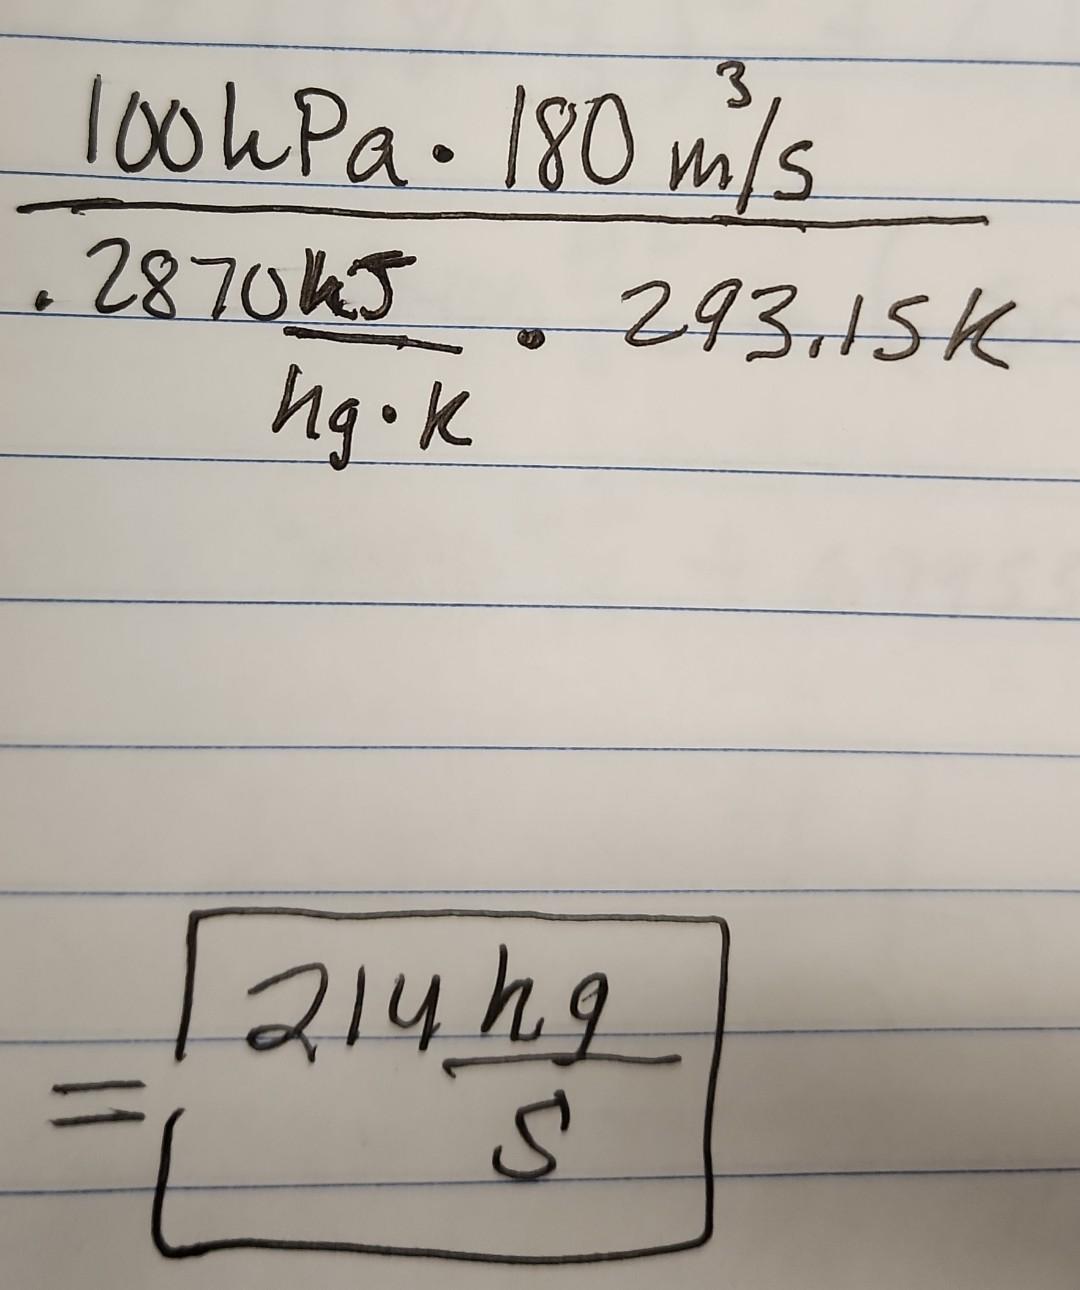 100kPa · 180 m³/s
.2870 kJ · 293.15K
kg·K
= 214 kg
s